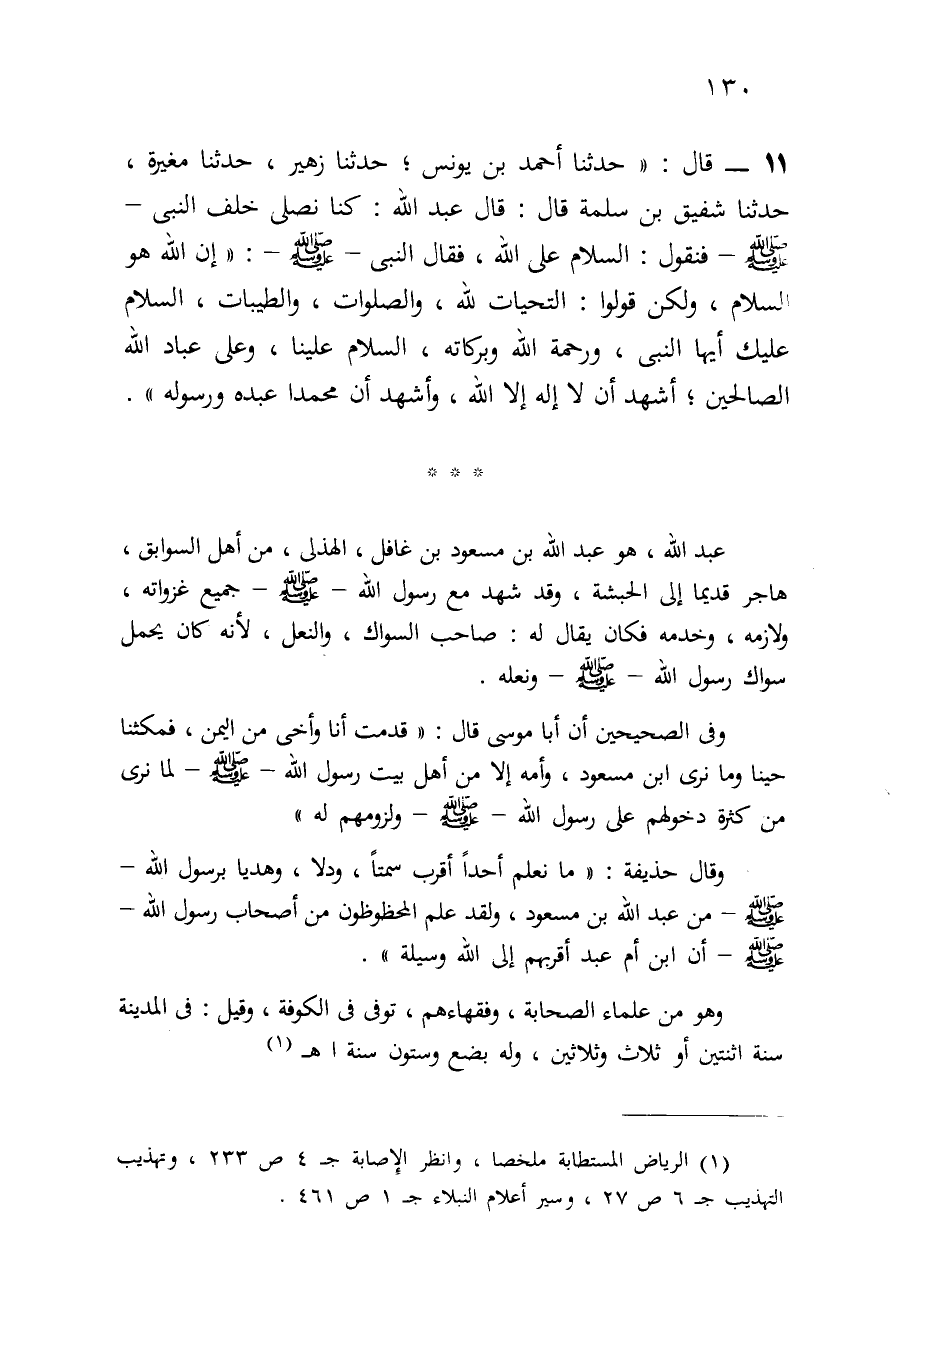 ١٣٠
١١ ــ قال : « حدثنا أحمد بن يونس ؛ حدثنا زهير ، حدثنا مغيرة ،
حدثنا شفيق بن سلمة قال : قال عبد الله : كنا نصلى خلف النبى –
ﷺ – فنقول : السلام على الله ، فقال النبى – ﷺ – : « إن الله هو
السلام ، ولكن قولوا : التحيات لله ، والصلوات ، والطيبات ، السلام
عليك أيها النبى ، ورحمة الله وبركاته ، السلام علينا ، وعلى عباد الله
الصالحين ؛ أشهد أن لا إله إلا الله ، وأشهد أن محمدا عبده ورسوله » .
* * *
عبد الله ، هو عبد الله بن مسعود بن غافل ، الهذلى ، من أهل السوابق ،
هاجر قديما إلى الحبشة ، وقد شهد مع رسول الله – ﷺ – جميع غزواته ،
ولازمه ، وخدمه فكان يقال له : صاحب السواك ، والنعل ، لأنه كان يحمل
سواك رسول الله – ﷺ – ونعله .
وفى الصحيحين أن أبا موسى قال : « قدمت أنا وأخى من اليمن ، فمكثنا
حينا وما نرى ابن مسعود ، وأمه إلا من أهل بيت رسول الله – ﷺ – لما نرى
من كثرة دخولهم على رسول الله – ﷺ – ولزومهم له »
وقال حذيفة : « ما نعلم أحداً أقرب سمتاً ، ودلا ، وهديا برسول الله –
ﷺ – من عبد الله بن مسعود ، ولقد علم المحظوظون من أصحاب رسول الله –
ﷺ – أن ابن أم عبد أقربهم إلى الله وسيلة » .
وهو من علماء الصحابة ، وفقهاءهم ، توفى فى الكوفة ، وقيل : فى المدينة
سنة اثنتين أو ثلاث وثلاثين ، وله بضع وستون سنة ا هـ (١)
(١) الرياض المستطابة ملخصا ، وانظر الإصابة جـ ٤ ص ٢٣٣ ، وتهذيب
التهذيب جـ ٦ ص ٢٧ ، وسير أعلام النبلاء جـ ١ ص ٤٦١ .